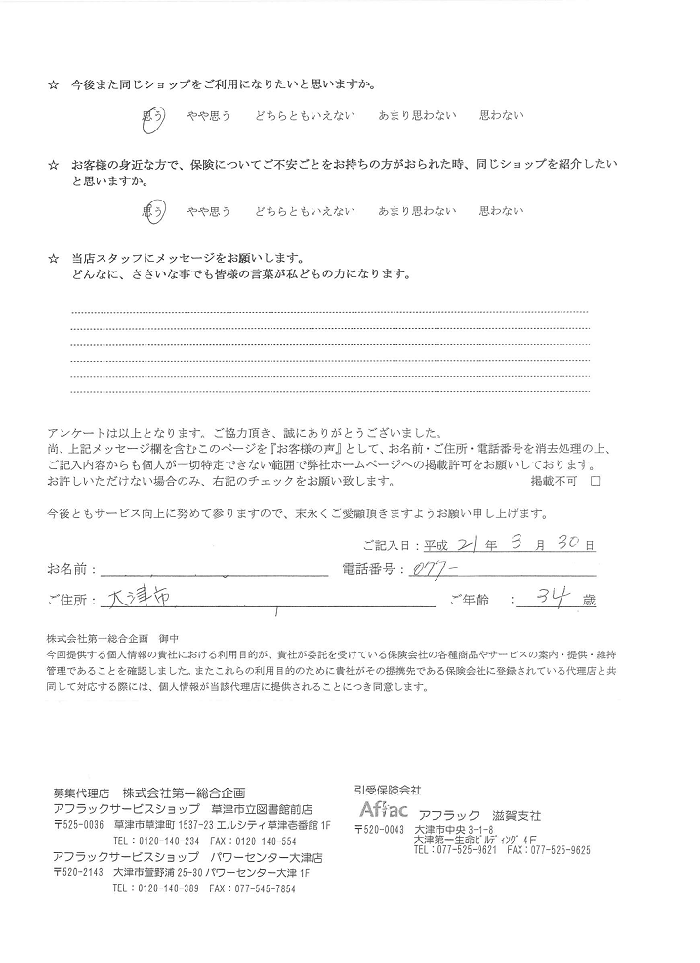 ☆ 今後また同じショップをご利用になりたいと思いますか。
思う やや思う どちらともいえない あまり思わない 思わない
☆ お客様の身近な方で、保険についてご不安ごとをお持ちの方がおられた時、同じショップを紹介したい
と思いますか。
思う やや思う どちらともいえない あまり思わない 思わない
☆ 当店スタッフにメッセージをお願いします。
どんなに、ささいな事でも皆様の言葉が私どもの力になります。
アンケートは以上となります。ご協力頂き、誠にありがとうございました。
尚、上記メッセージ欄を含むこのページを『お客様の声』として、お名前・ご住所・電話番号を消去処理の上、
ご記入内容からも個人が一切特定できない範囲で弊社ホームページへの掲載許可をお願いしております。
お許しいただけない場合のみ、右記のチェックをお願い致します。 掲載不可 □
今後ともサービス向上に努めて参りますので、末永くご愛顧頂きますようお願い申し上げます。
ご記入日：平成 21 年 3 月 30 日
お名前： 電話番号：077-
ご住所：大津市 ご年齢 ： 34 歳
株式会社第一総合企画 御中
今回提供する個人情報の貴社における利用目的が、貴社が委託を受けている保険会社の各種商品やサービスの案内・提供・維持
管理であることを確認しました。またこれらの利用目的のために貴社がその提携先である保険会社に登録されている代理店と共
同して対応する際には、個人情報が当該代理店に提供されることにつき同意します。
募集代理店 株式会社第一総合企画
アフラックサービスショップ 草津市立図書館前店
〒525-0036 草津市草津町 1537-23 エルシティ草津壱番館 1F
TEL：0120-140-234 FAX：0120-140-554
アフラックサービスショップ パワーセンター大津店
〒520-2143 大津市萱野浦 25-30 パワーセンター大津 1F
TEL：0120-140-389 FAX：077-545-7854
引受保険会社
Aflac アフラック 滋賀支社
〒520-0043 大津市中央 3-1-8
大津第一生命ビルディング 4F
TEL：077-525-9621 FAX：077-525-9625